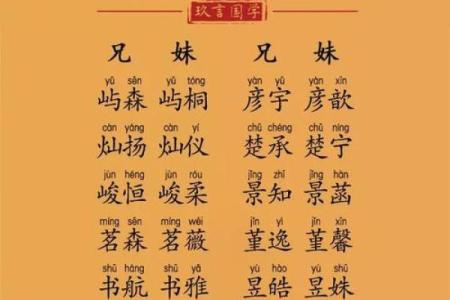 玖言国学
兄 妹 兄 妹
yǔ sēn yǔ tóng yàn yǔ yàn xīn
屿森 屿桐 彦宇 彦歆
càn yáng càn yí chǔ chéng chǔ níng
灿扬 灿仪 楚承 楚宁
jùn héng jùn róu jǐng zhī jǐng hàn
峻恒 峻柔 景知 景菡
míng sēn míng wēi jǐn yì jǐn xīn
茗森 茗薇 堇逸 堇馨
shū háng shū yǎ yù hào yù shū
书航 书雅 昱皓 昱姝